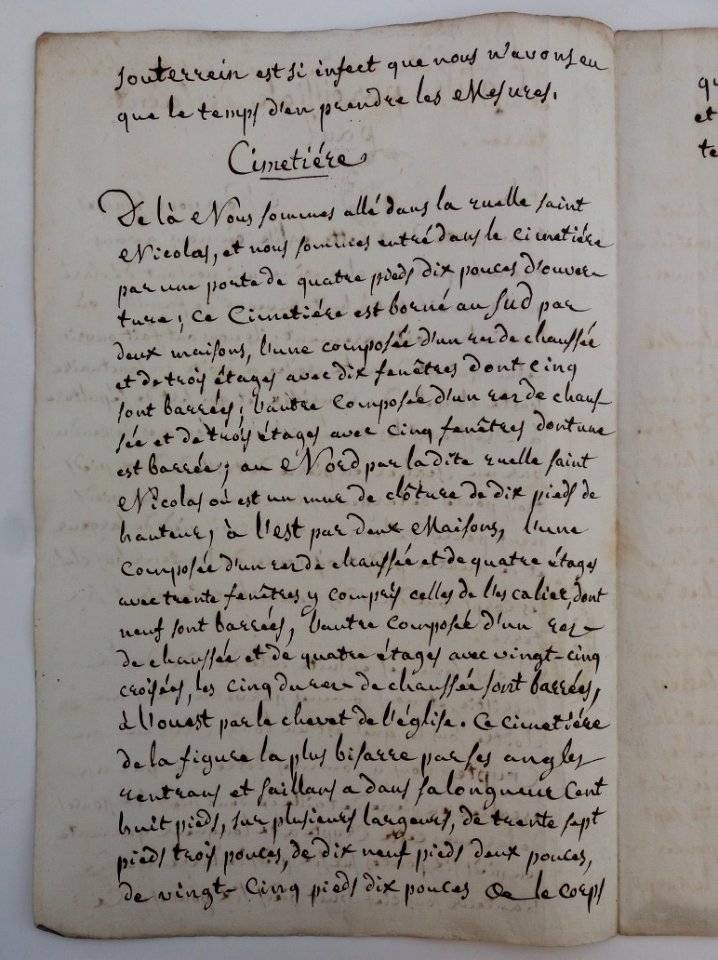 souterrein est si infect que nous n'avons eu
que le temps d'en prendre les Mesures.
Cimetiére
De là Nous sommes allé dans la ruelle saint
Nicolas, et nous sommes entré dans le cimetiére
par une porte de quatre pieds dix pouces d'ouver-
ture; ce Cimetiére est borné au Sud par
deux maisons, l'une composée d'un rez de chaussée
et de trois étages avec dix fenêtres dont cinq
sont barrées; l'autre Composée d'un rez de chaus-
sée et de trois étages avec cinq fenêtres dont une
est barrée; au Nord par la dite ruelle saint
Nicolas où est un mur de clôture de dix pieds de
hauteur; à l'est par deux Maisons, l'une
composée d'un rez de chaussée et de quatre étages
avec trente fenêtres y compris celles de l'escalier, dont
neuf sont barrées, l'autre composée d'un rez-
de chaussée et de quatre étages avec vingt-cinq
croisées, les cinq du rez-de chaussée sont barrées,
à l'ouest par le chevet de l'église. Ce cimetiére
de la figure la plus bisarre par ses angles
rentrans et saillans a dans sa longueur Cent
huit pieds, sur plusieurs largeurs, de trente sept
pieds trois pouces, de dix neuf pieds deux pouces,
de vingt-cinq pieds dix pouces de le corps
qu
et
te